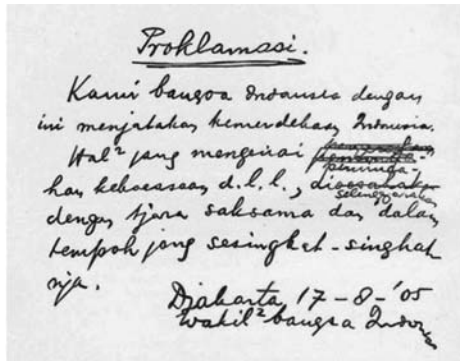 Proklamasi.
Kami bangsa Indonesia dengan
ini menjatakan kemerdekaan Indonesia.
Hal² jang mengenai
pemindahan
kekoeasaan d.l.l., diselenggarakan
dengan tjara saksama dan dalam
tempoh jang sesingkat-singkat
nja.
Djakarta, 17 - 8 - '05
Wakil² bangsa Indonesia